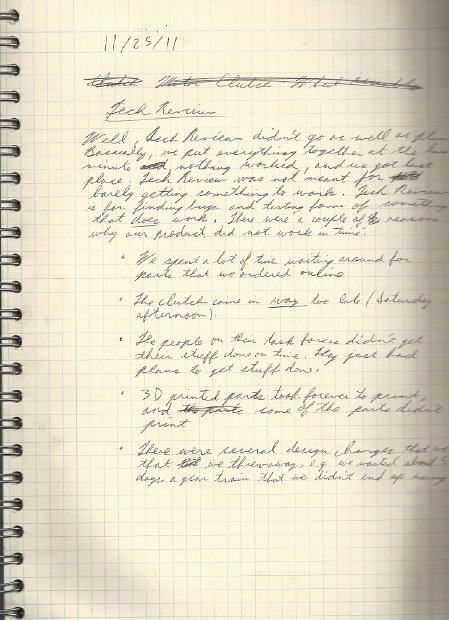 11/25/11
Clutch Motor Clutch Wheel Assembly
Tech Review
Well, Tech Review didn't go as well as plan
Basically, we put everything together at the las
minute and, nothing worked, and we got last
place. Tech Review was not meant for
barely getting something to work. Tech Review
is for finding bugs and testing form of something
that does work. There were a couple of reasons
why our product did not work in time:
• We spent a lot of time waiting around for
parts that we ordered online
• The clutch came in way too late (Saturday
afternoon).
• The people on their task forces didn't get
their stuff done on time. They just had
plans to get stuff done.
• 3D printed parts took forever to print,
and the parts some of the parts didn't
print
• There were several design changes that we
that we threw away, e.g. we wasted about 5
days a gear train that we didn't end up using